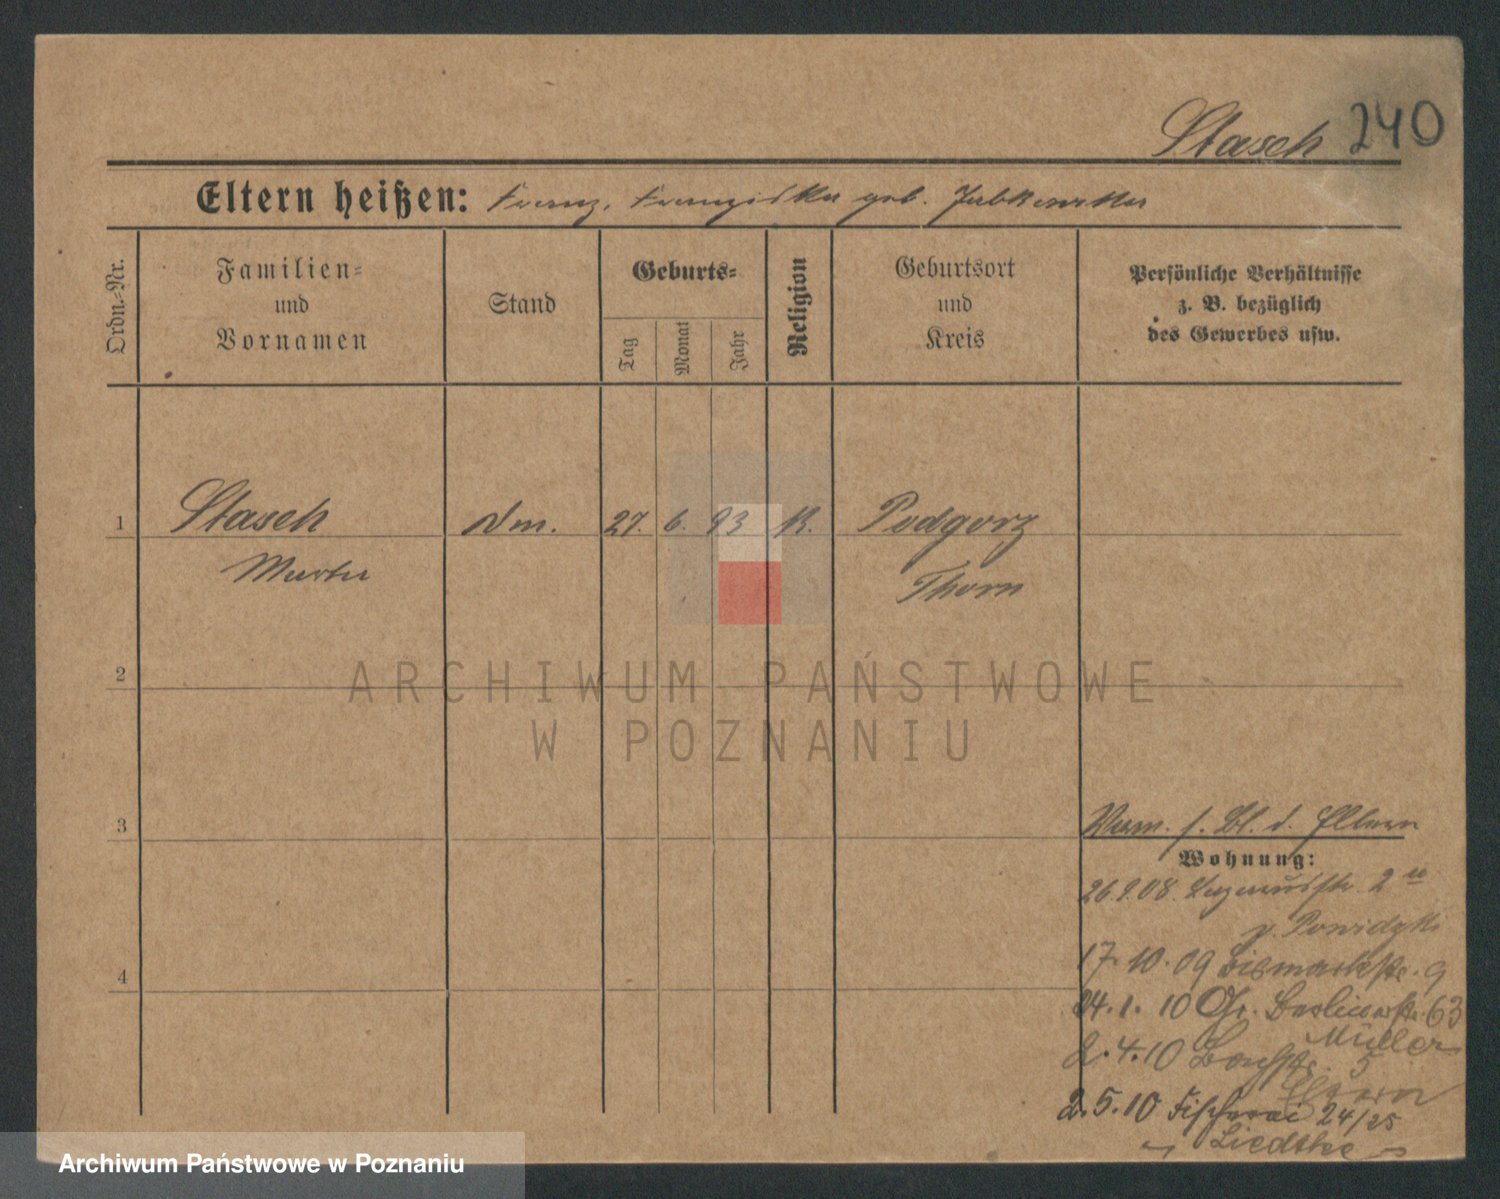 Stasch 240
Eltern heißen: Franz, Franziska geb.
Ordn.-Nr.
Familien-
und
Vornamen
Stand
Geburts-
Tag
Monat
Jahr
Religion
Geburtsort
und
Kreis
Persönliche Verhältnisse
z. B. bezüglich
des Gewerbes usw.
1 Stasch 27. 6. 93 K. Podgorz
Thorn
2
ARCHIWUM PAŃSTWOWE
W POZNANIU
3
s. Bl. d. Eltern
Wohnung:
26.9.08. 2
17.10.09 Bismarckstr. 9
24.1.10 Gr. Berlinerstr. 63
Müller
2.4.10 5
2.5.10 Fischerei 24/25
Liedtke
4
Archiwum Państwowe w Poznaniu